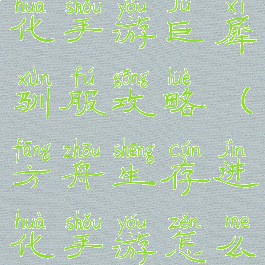 huà shǒu yóu jù xī
化手游巨犀
xùn fú gōng lüè
驯服攻略（
fāng zhōu shēng cún jìn
方舟生存进
huà shǒu yóu zěn me
化手游怎么